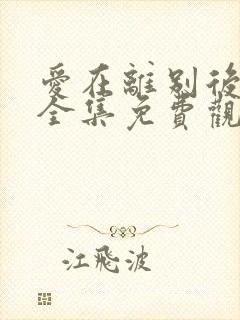 愛在離別後
全集免費觀
江飛波